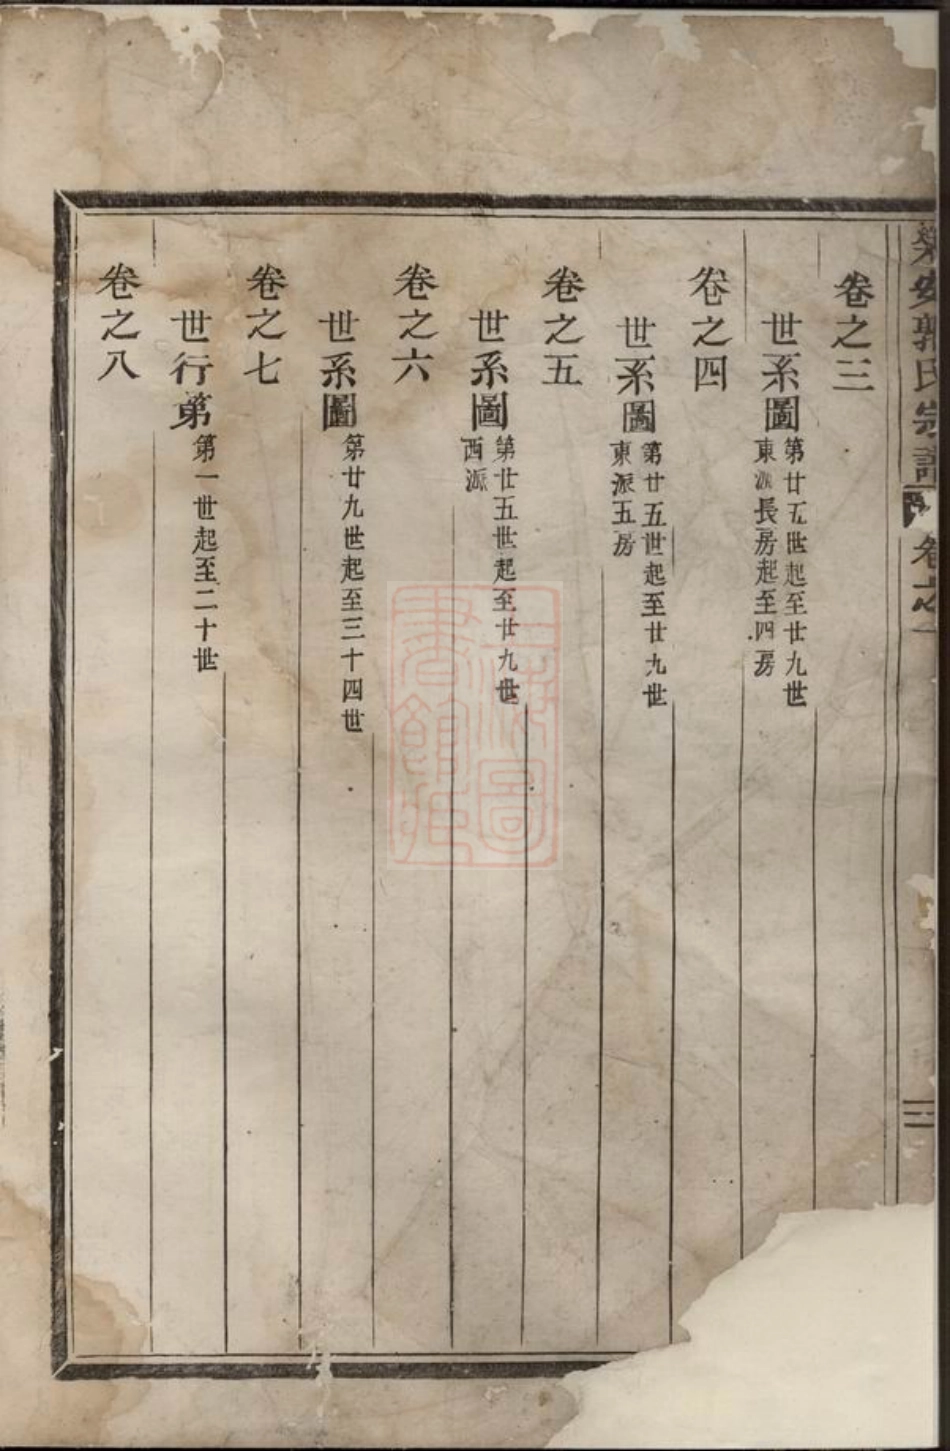 安郭氏宗譜 卷之一
卷之三
世系圖 第廿五世起至廿九世
東派長房起至四房
卷之四
世系圖 第廿五世起至廿九世
東派五房
卷之五
世系圖 第廿五世起至廿九世
西派
卷之六
世系圖 第廿九世起至三十四世
卷之七
世行第 第一世起至二十世
卷之八